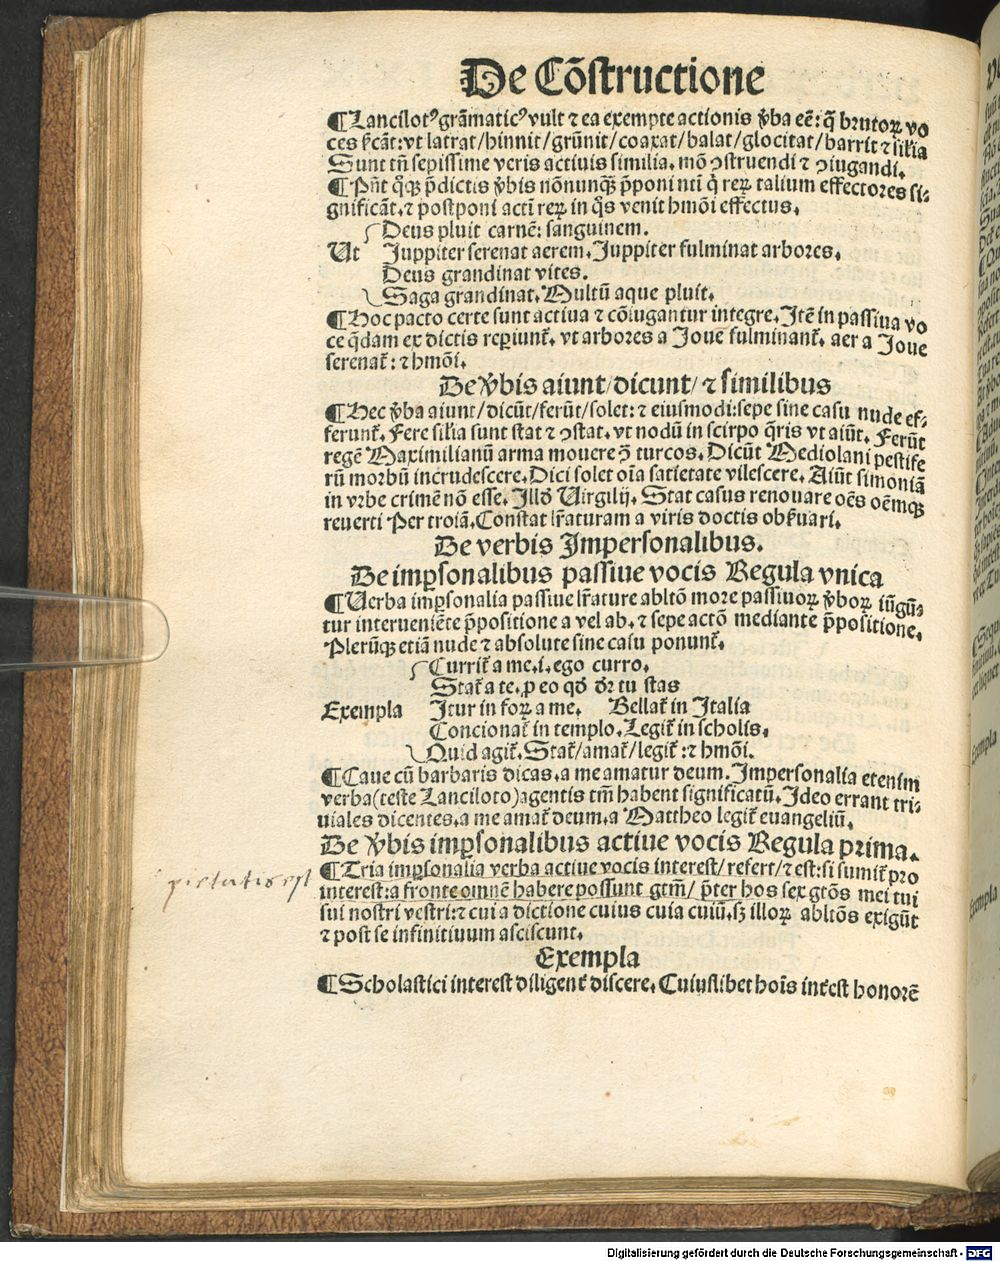 De Cõſtructione
¶Lanciloꝰ grãmaticꝰ vult ⁊ ea exempte actionis ꝟba eē: q̃ brutoꝝ vo
ces ſcãt: vt latrat/hinnit/grũnit/coaxat/balat/glocitat/barrit ⁊ ſilia
Sunt tñ ſepiſſime veris actiuis ſimilia. mõ ꝯſtruendi ⁊ ꝯiugandi.
¶Pñt q̃ꝫ p̃dictis ꝟbis nõnunq̃ꝫ p̃poni nti q̃ reꝝ talium effectores ſi⸗
gnificãt. ⁊ poſtponi acti reꝝ in q̃s venit hmõi effectus.
Deus pluit carnē: ſanguinem.
Ut Juppiter ſerenat aerem. Juppiter fulminat arbores.
Deus grandinat vites.
Saga grandinat. Multũ aque pluit.
¶Hoc pacto certe ſunt actiua ⁊ cõiugantur integre. Jtē in paſſiua vo
ce q̃dam ex dictis reꝑiunt̃. vt arbores a Joue fulminant̃. aer a Joue
ſerenat̃: ⁊ hmõi.
De ꝟbis aiunt/dicunt/ ⁊ ſimilibus
¶Hec ꝟba aiunt/dicũt/ferũt/ſolet: ⁊ eiuſmodi: ſepe ſine caſu nude ef⸗
ferunt̃. Fere ſilia ſunt ſtat ⁊ ꝯſtat. vt nodũ in ſcirpo q̃ris vt aiũt. Ferũt
regē Maximilianũ arma mouere ꝯ̃ turcos. Dicũt Mediolani peſtife
rũ morbũ incrudeſcere. Dici ſolet oĩa ſatietate vileſcere. Aiũt ſimoniã
in vrbe crimē nõ eſſe. Jllð Uirgilij. Stat caſus renouare oēs oēmqꝫ
reuerti Per troiã. Conſtat lr̃aturam a viris doctis obſuari.
De verbis Jmperſonalibus.
De imꝑſonalibus paſſiue vocis Regula vnica
¶Uerba imꝑſonalia paſſiue lr̃ature abltõ more paſſiuoꝝ ꝟboꝝ iũgũ⸗
tur interueniēte p̃poſitione a vel ab. ⁊ ſepe actõ mediante p̃poſitione.
Plerũqꝫ etiã nude ⁊ abſolute ſine caſu ponunt̃.
Currit̃ a me. i. ego curro.
Stat̃ a te. ꝑ eo qð ðr tu ſtas
Exempla Jtur in foꝝ a me. Bellat̃ in Jtalia
Concionat̃ in templo. Legit̃ in ſcholis.
Quid agit̃. Stat̃/amat̃/legit̃: ⁊ hmõi.
¶Caue cũ barbaris dicas. a me amatur deum. Jmperſonalia etenim
verba (teſte Lanciloto) agentis tm̃ habent ſignificatũ. Jdeo errant tri⸗
uiales dicentes. a me amat̃ deum. a Mattheo legit̃ euangeliũ.
De ꝟbis imꝑſonalibus actiue vocis Regula prima.
¶Tria imꝑſonalia verba actiue vocis intereſt/refert/⁊ eſt: ſi ſumit̃ pro
intereſt: a fronte omnē habere poſſunt gtm̃/ p̃ter hos ſex gtõs mei tui
ſui noſtri veſtri: ⁊ cui a dictione cuius cuia cuiũ. ſꝫ illoꝝ abltõs exigũt
⁊ poſt ſe infinitiuum aſciſcunt.
Exempla
¶Scholaſtici intereſt diligent̃ diſcere. Cuiuſlibet hoĩs int̃eſt honorē
Digitalisierung gefördert durch die Deutsche Forschungsgemeinschaft - DFG